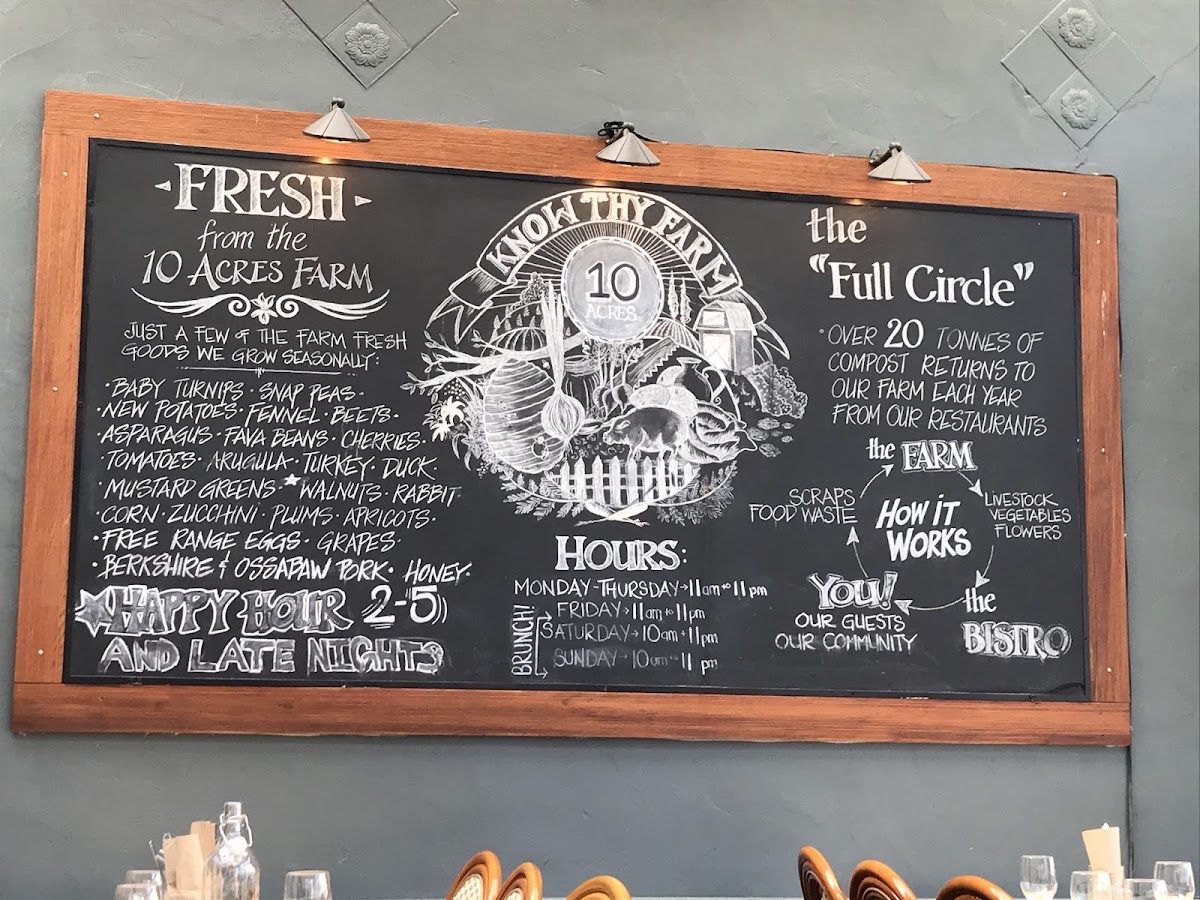 FRESH
from the
10 ACRES FARM
JUST A FEW OF THE FARM FRESH
GOODS WE GROW SEASONALLY:
·BABY TURNIPS·SNAP PEAS·
·NEW POTATOES·FENNEL·BEETS·
·ASPARAGUS·FAVA BEANS·CHERRIES·
·TOMATOES·ARUGULA·TURKEY·DUCK·
·MUSTARD GREENS·WALNUTS·RABBIT
·CORN·ZUCCHINI·PLUMS·APRICOTS·
·FREE RANGE EGGS·GRAPES·
·BERKSHIRE & OSSABAW PORK·HONEY·
HAPPY HOUR 2-5
AND LATE NIGHTS
KNOW THY FARM
10
ACRES
HOURS:
MONDAY-THURSDAY→11am to 11pm
FRIDAY→11am to 11pm
SATURDAY→10am to 11pm
SUNDAY→10am to 11pm
BRUNCH!
the
"Full Circle"
·OVER 20 TONNES OF
COMPOST RETURNS TO
OUR FARM EACH YEAR
FROM OUR RESTAURANTS
the FARM
LIVESTOCK
VEGETABLES
FLOWERS
the
BISTRO
YOU!
OUR GUESTS
OUR COMMUNITY
SCRAPS
FOOD WASTE
HOW IT
WORKS